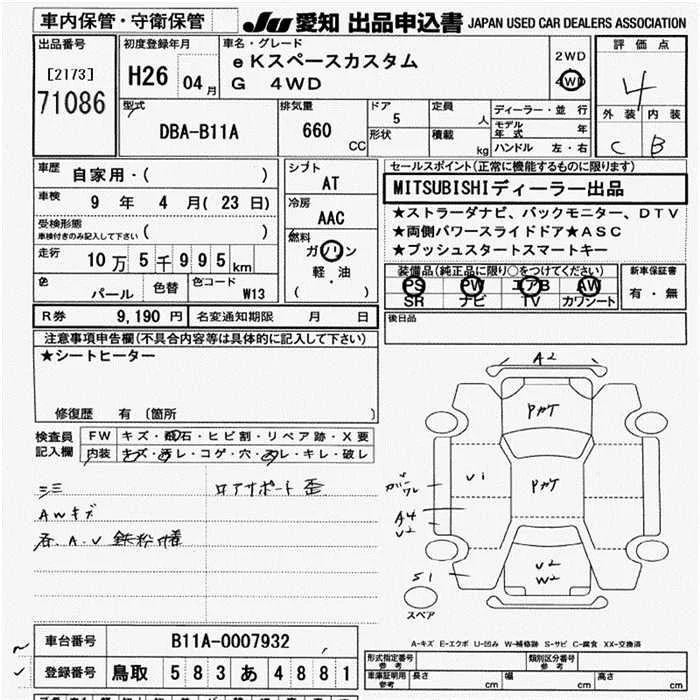 車内保管・守衛保管
JU 愛知 出品申込書 JAPAN USED CAR DEALERS ASSOCIATION
出品番号
[2173]
71086
初度登録年月
H26 04 月
車名・グレード
eKスペースカスタム
G 4WD
2WD
4WD
評価点
4
外装 内装
C B
型式
DBA-B11A
排気量
660 CC
ドア
5
形状
定員
人
積載
kg
ディーラー・並行
モデル年式 年
ハンドル 左・右
車歴
自家用・( )
車検
9 年 4 月( 23 日)
受検形態
車検付きのみ記入して下さい ( )
走行
10万5千995km
色
パール
色替
色コード
W13
シフト
AT
冷房
AAC
燃料
ガソリン
軽・油
( )
セールスポイント(正常に機能するものに限ります)
MITSUBISHIディーラー出品
★ストラーダナビ、バックモニター、DTV
★両側パワースライドドア★ASC
★プッシュスタートスマートキー
装備品(純正品に限り○をつけてください)
PS PW エアB AW
SR ナビ TV カワシート
新車保証書
有・無
R券 9,190 円 名変通知期限 月 日
後日品
注意事項申告欄(不具合内容等は具体的に記入して下さい)
★シートヒーター
修復歴 有 〔箇所 〕
検査員記入欄
FW キズ・飛石・ヒビ割・リペア跡・X要
内装 キズ・汚レ・コゲ・穴・スレ・キレ・破レ
ロアサポート歪
AWキズ
A2
Pカケ
Pカケ
U1
A4
U2
S1
U2
W2
スペア
A-キズ E-エクボ U-凹み W-補修跡 S-サビ C-腐食 XX-交換済
車台番号 B11A-0007932
登録番号 鳥取 583 あ 4881
形式指定番号
参考
類別区分番号
参考
車庫証明用
参考
長さ cm
幅 cm
高さ cm